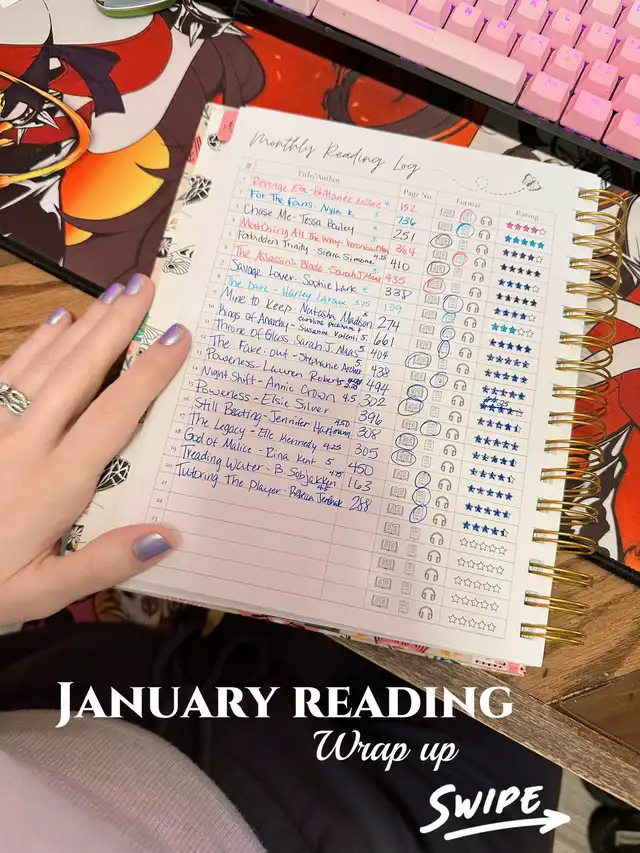 Monthly Reading Log
# Title/Author Page No. Format Rating
Revenge Era - Brittanee Nicole 152
For The Fans - Nyla K 5 736
Chase Me - Tessa Bailey 251
Matching All The Way - Veronica 364
Forbidden Trinity - Sierra Simone 4.25 410
The Assassin's Blade - Sarah J Maas 435
Savage Lover - Sophie Lark 338
The Dare - Harley Laroux 3.75 109
Mine to Keep - Natasha Madison 274
Kings of Anarchy - Susanne Valenti, Caroline Peckham 5 661
Throne of Glass - Sarah J. Maas 5 404
The Fake out - Stephanie Archer 438
Powerless - Lauren Roberts 494
Night Shift - Annie Crown 4.5 302
Powerless - Elsie Silver 396
Still Beating - Jennifer Hartmann 308
The Legacy - Elle Kennedy 4.25 305
God of Malice - Rina Kent 5 450
Treading Water - B. Sobjakken 163
Tutoring The Player - Rebecca Jenshak 288
JANUARY READING
Wrap up
SWIPE